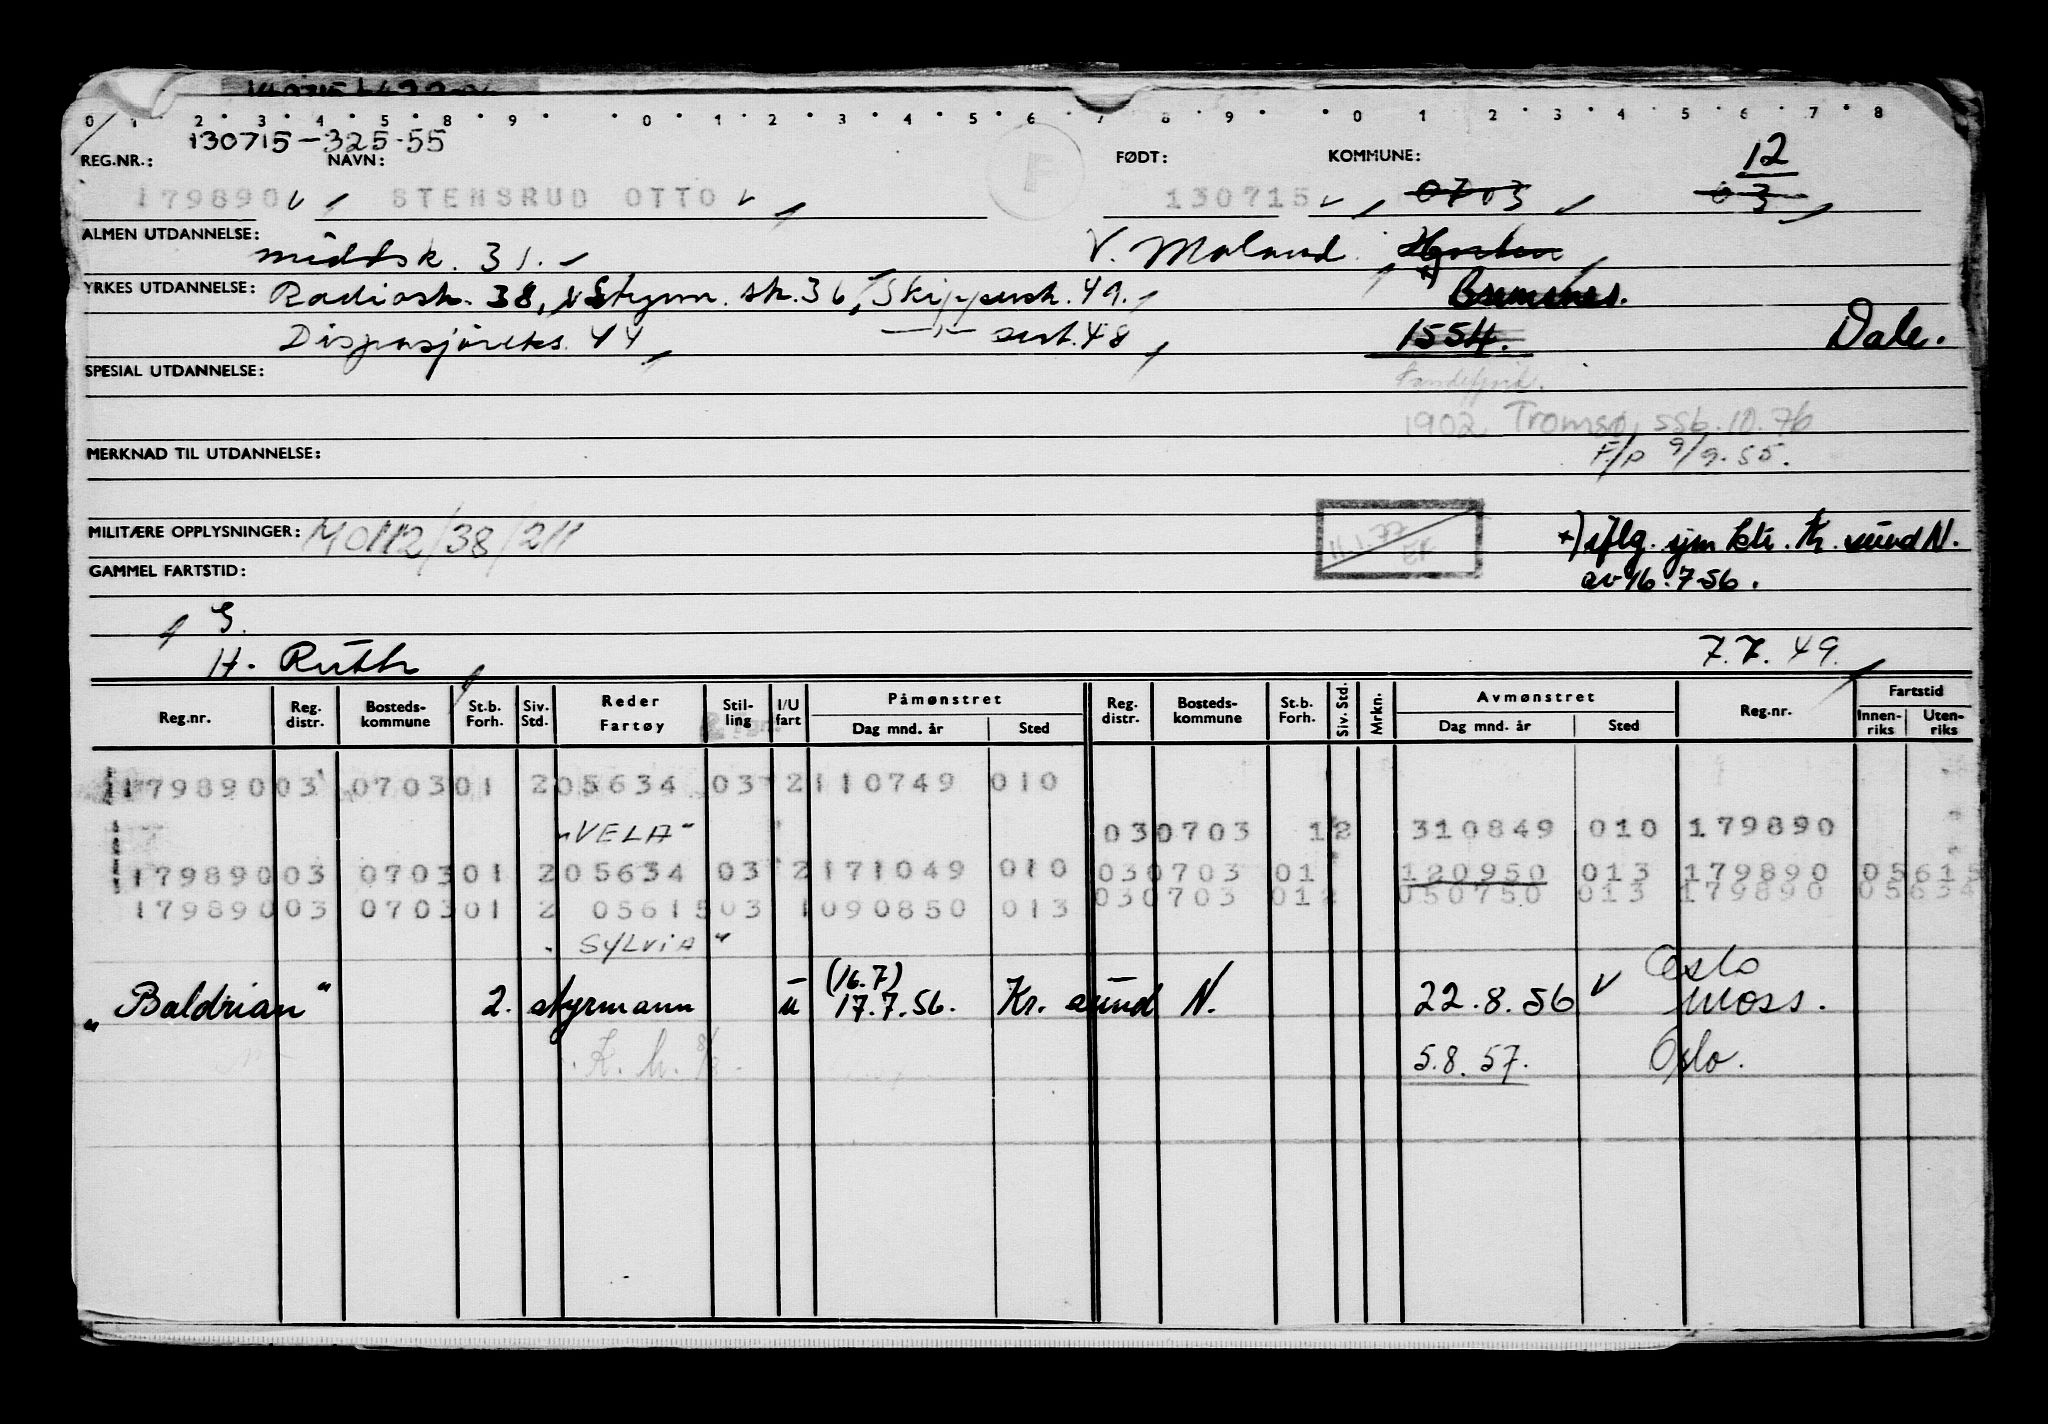 0 1 2 3 4 5 8 9 0 1 2 3 4 5 6 7 8 9 0 1 2 3 4 5 6 7 8
130715-325-55
REG.NR.: NAVN: FØDT: KOMMUNE: 12
179890 STENSRUD OTTO 130715 0703 03
ALMEN UTDANNELSE: middsk. 31. V. Moland
YRKES UTDANNELSE: Radiosk. 38, Styrm. sk. 36, Skippersk. 49. Bremsnes.
Dispasjöreks. 44 —"— sert. 48 1554. Dale.
SPESIAL UTDANNELSE:
1902 Tromsø, ssb. 10.76
MERKNAD TIL UTDANNELSE: F/p 9/9.55.
MILITÆRE OPPLYSNINGER: 11.1.77 +) iflg. sjm ktr. Kr. sund N.
GAMMEL FARTSTID: av 16.7-56.
G.
H. Ruth 7.7.49.
Reg.nr. Reg. distr. Bosteds- kommune St.b. Forh. Siv. Std. Reder Fartøy Stil- ling I/U fart Påmønstret Dag mnd. år Sted Reg. distr. Bosteds- kommune St.b. Forh. Siv. Std. Mrkn. Avmønstret Dag mnd. år Sted Reg.nr. Fartstid Innen- riks Uten- riks
179890 03 0703 01 2 05634 03 2 110749 010
"VELA" 03 0703 1 2 310849 010 179890
179890 03 0703 01 2 05634 03 2 171049 010 03 0703 01 120950 013 179890 05615
179890 03 0703 01 2 05615 03 1 090850 013 03 0703 01 2 050750 013 179890 05634
"SYLVIA"
(16.7) Oslo
"Baldrian" 2. styrmann u 17.7.56. Kr. sund N. 22.8.56 Moss.
5.8.57. Oslo.